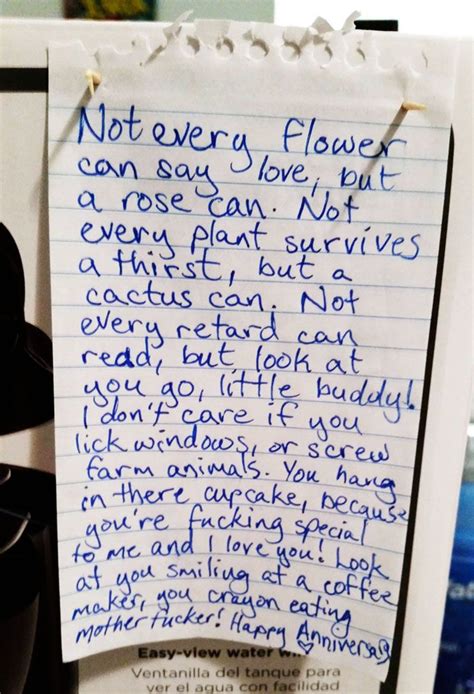 Not every flower
can say love, but
a rose can. Not
every plant survives
a thirst, but a
cactus can. Not
every retard can
read, but look at
you go, little buddy!
I don't care if you
lick windows, or screw
farm animals. You hang
in there cupcake, because
you're fucking special
to me and I love you! Look
at you smiling at a coffee
maker, you crayon eating
motherfucker! Happy Anniversary
Easy-view water
Ventanilla del tanque para
ver el agua con facilidad